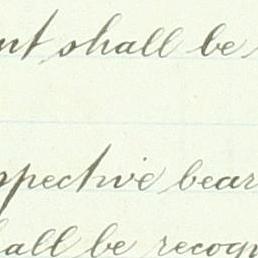 nt shall be
spective bear
hall be recogn